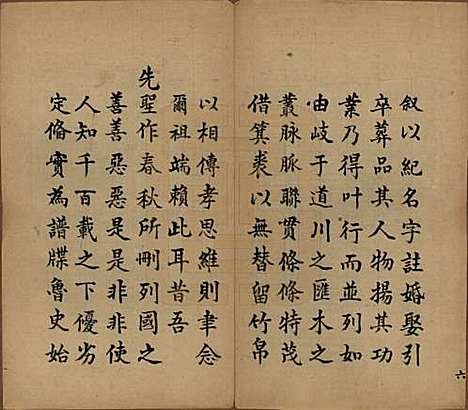 叙以紀名字註婚娶引
卒葬品其人物揚其功
業乃得叶行而並列如
由岐于道川之匯木之
叢脉脈聯貫條條特茂
借箕裘以無替留竹帛
六
以相傳孝思維則聿念
爾祖端賴此耳昔吾
先聖作春秋所刪列國之
善善惡惡是是非非使
人知千百載之下優劣
定脩實為譜牒魯史始